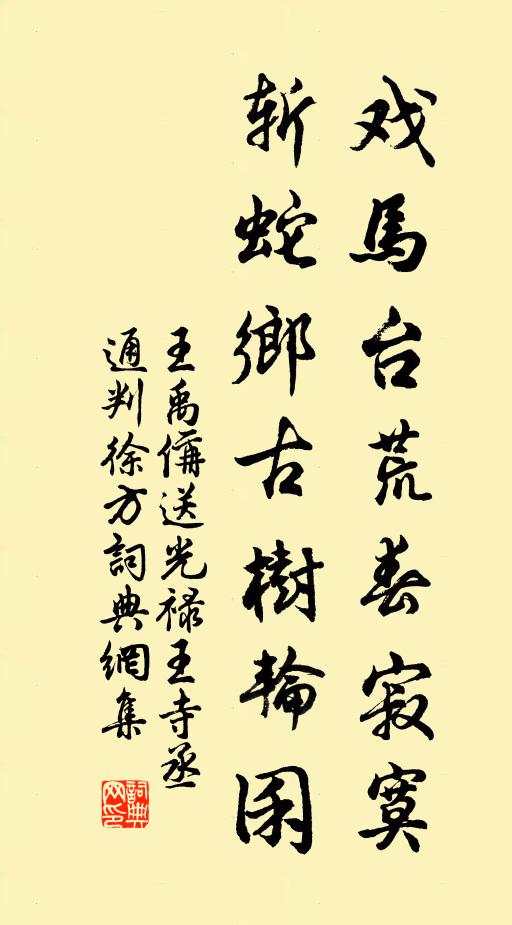 戏馬台荒春寂寞
斩蛇鄉古樹輪囷
王禹偁送光禄王寺丞
通判徐方詞典網集
詞典网印